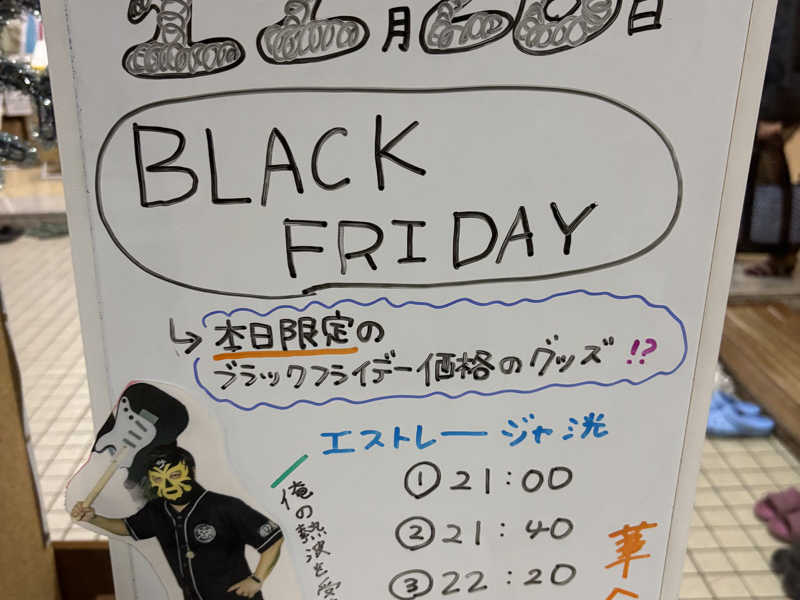 11月28日
BLACK
FRIDAY
↳本日限定の
ブラックフライデー価格のグッズ!?
エストレージャ洸
① 21:00
② 21:40
③ 22:20
俺の熱波を受